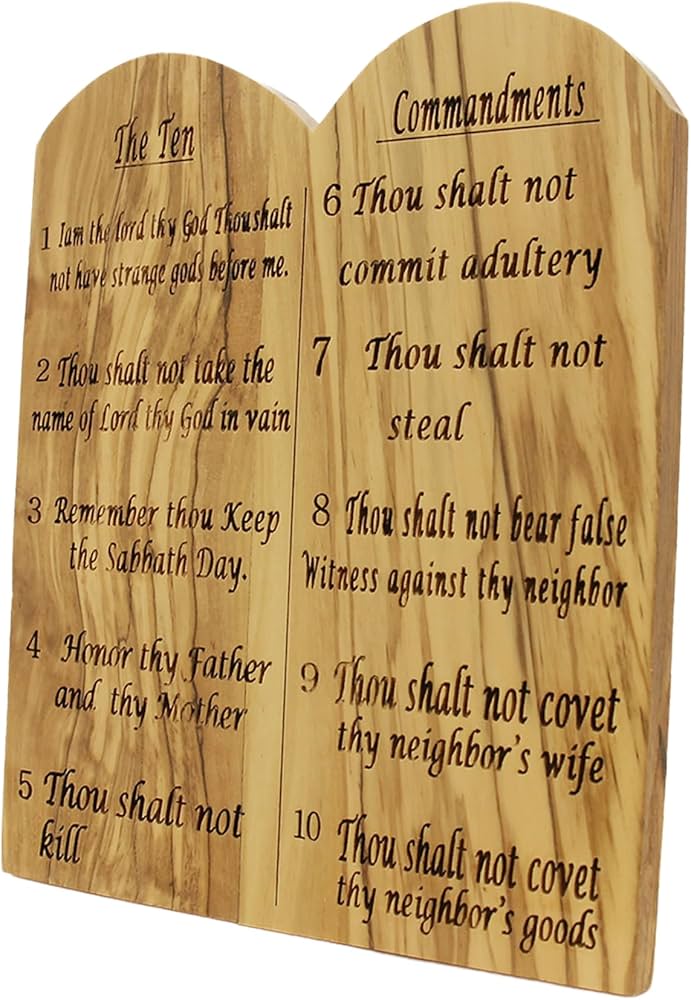 The Ten
1 Iam the lord thy God Thoushalt
not have strange gods before me.
2 Thou shalt not take the
name of Lord thy God in vain
3 Remember thou Keep
the Sabbath Day.
4 Honor thy Father
and thy Mother
5 Thou shalt not
kill
Commandments
6 Thou shalt not
commit adultery
7 Thou shalt not
steal
8 Thou shalt not bear false
Witness against thy neighbor
9 Thou shalt not covet
thy neighbor's wife
10 Thou shalt not covet
thy neighbor's goods